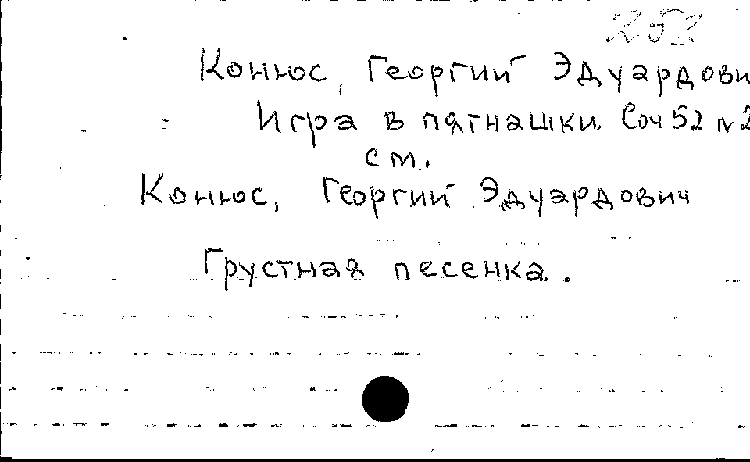 252
Конюс, Георгий Эдуардови
Игра в пятнашки. Соч 52 № 2
см.
Конюс, Георгий Эдуардович
Грустная песенка.